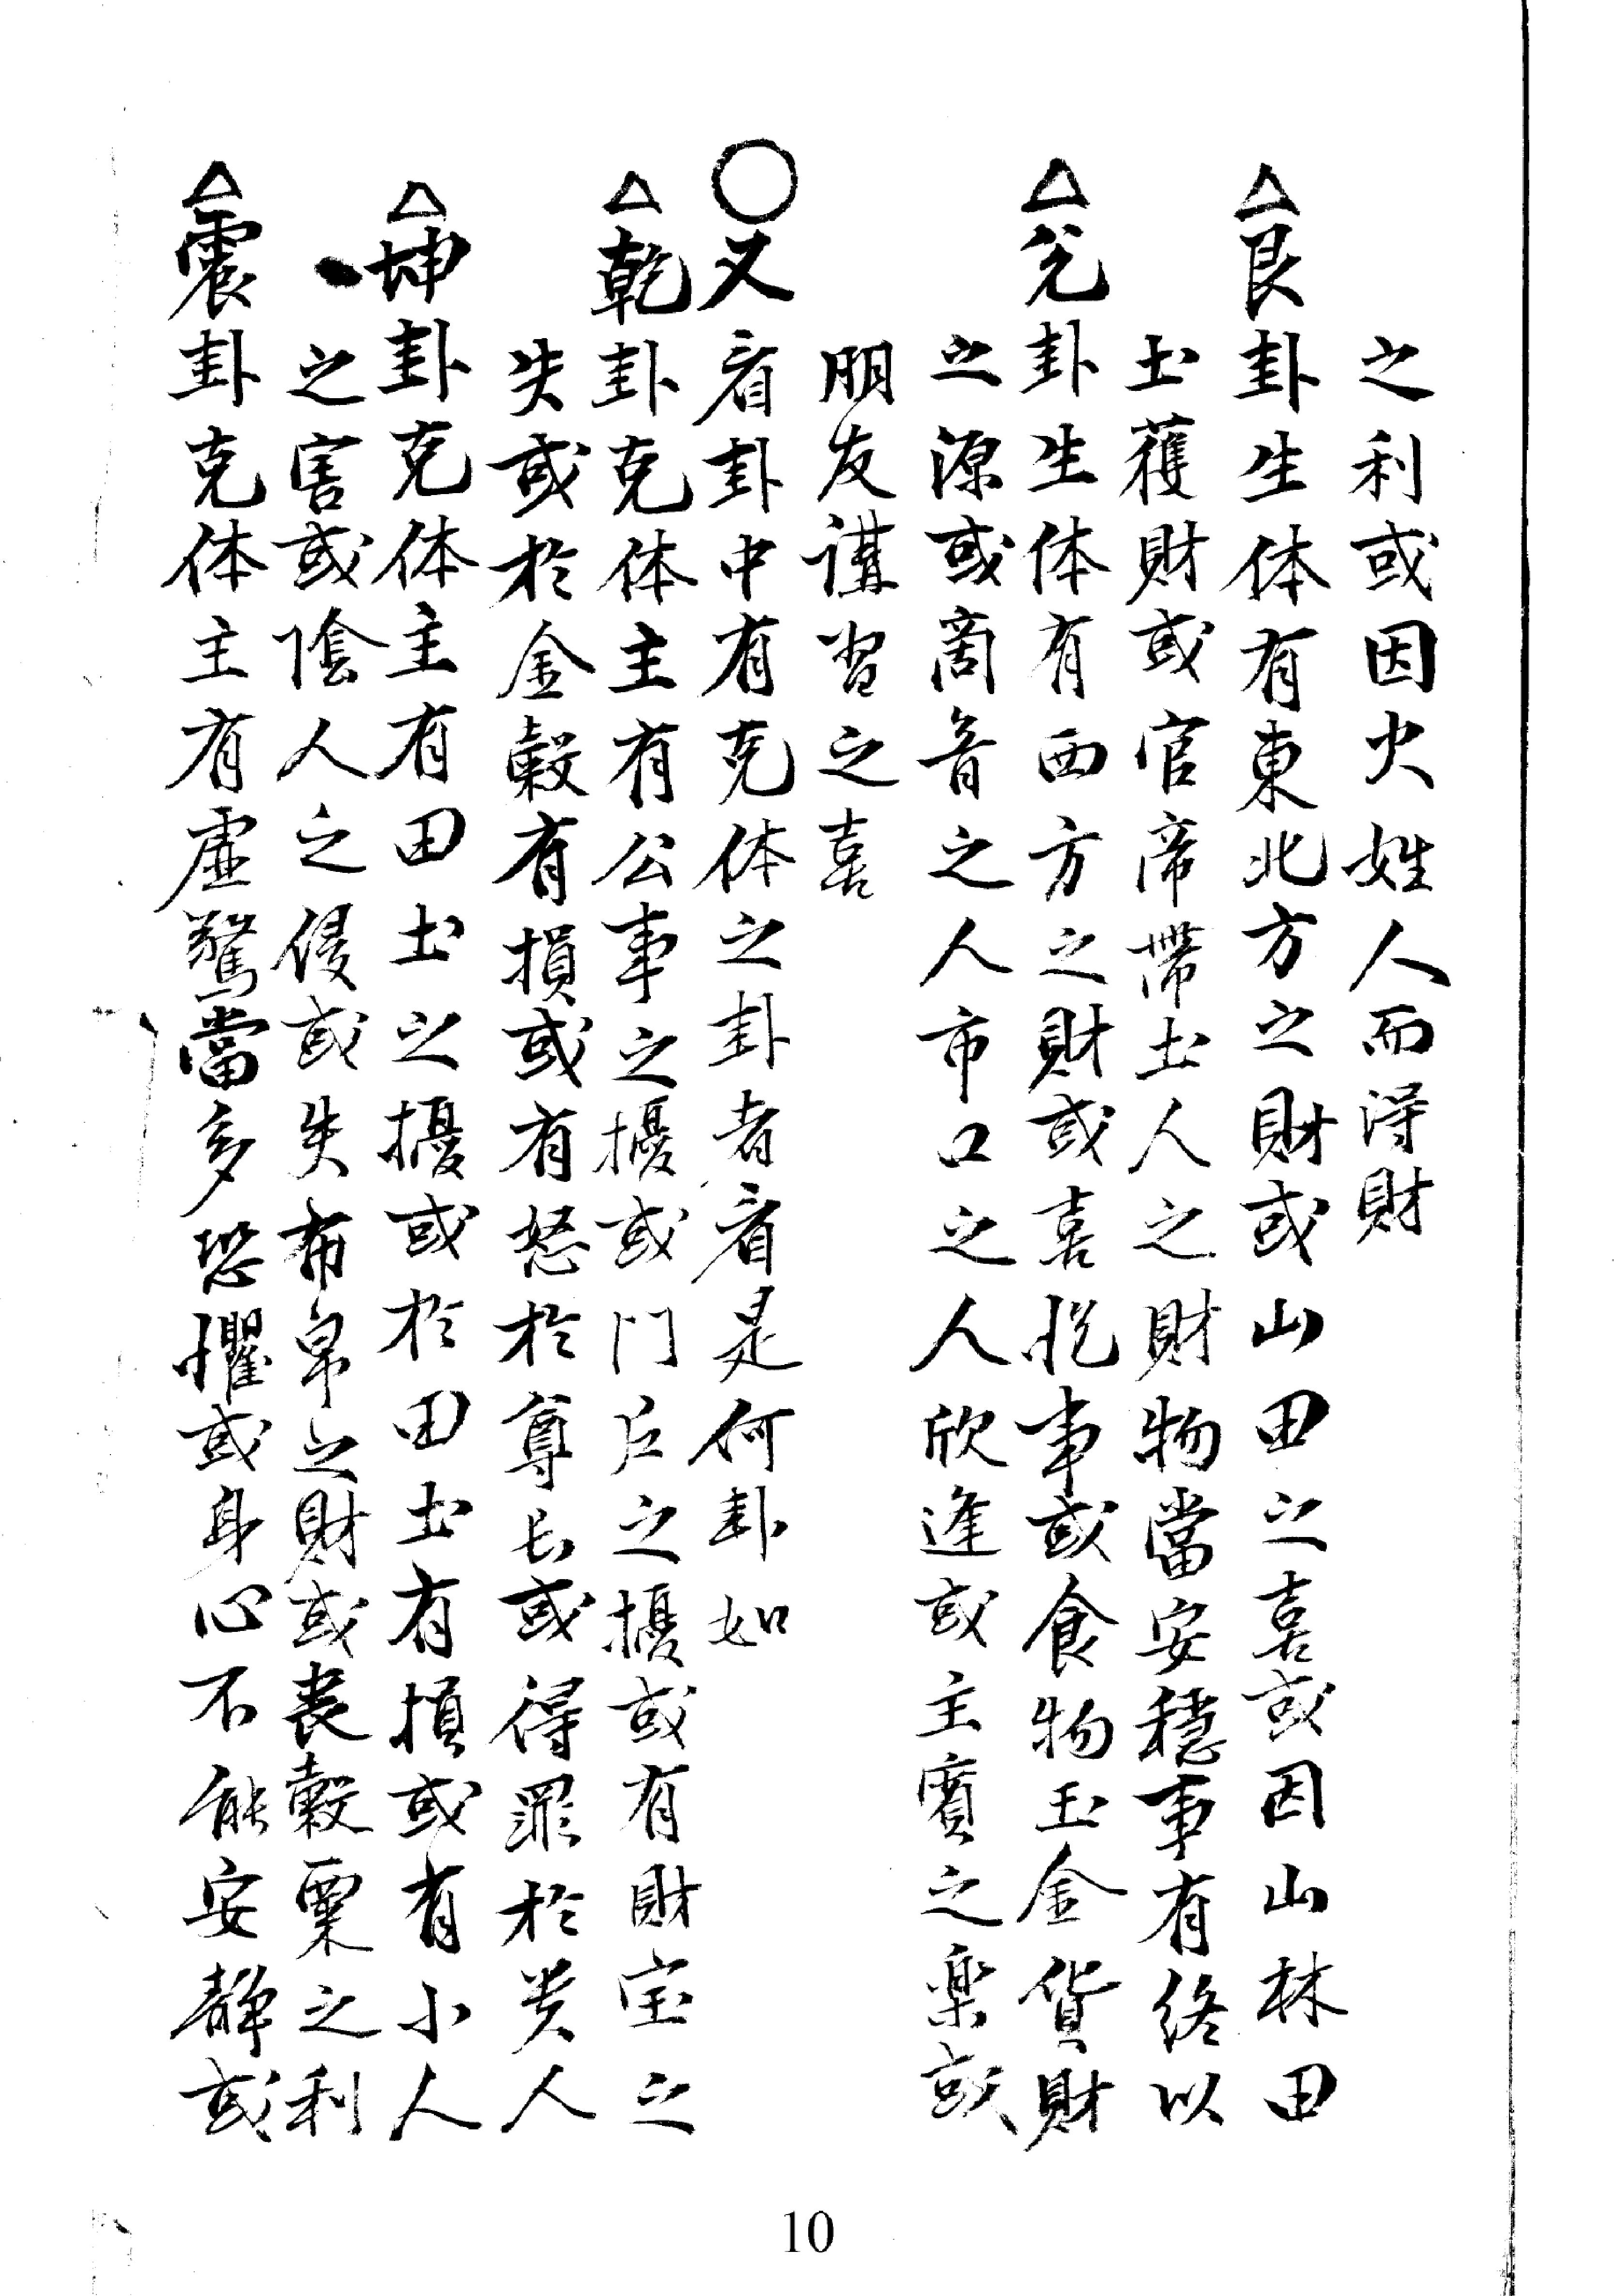 之利或因火姓人而淂財
△艮卦生体有東北方之財或山田之喜或因山林田
土獲財或官帝帶土人之財物當安穩事有终以
△兌卦生体有西方之財或喜悦事或食物玉金貨財
之源或商音之人市口之人欣逢或主賓之楽或
朋友講習之喜
○又看卦中有克体之卦者看是何卦如
△乾卦克体主有公事之擾或門户之擾或有財宝之
失或於金穀有損或有怒於尊长或得罪於贵人
△坤卦克体主有田土之擾或於田土有損或有小人
之害或陰人之侵或失布帛之財或丧穀粟之利
△震卦克体主有虚驚當多恐懼或身心不能安靜或
10